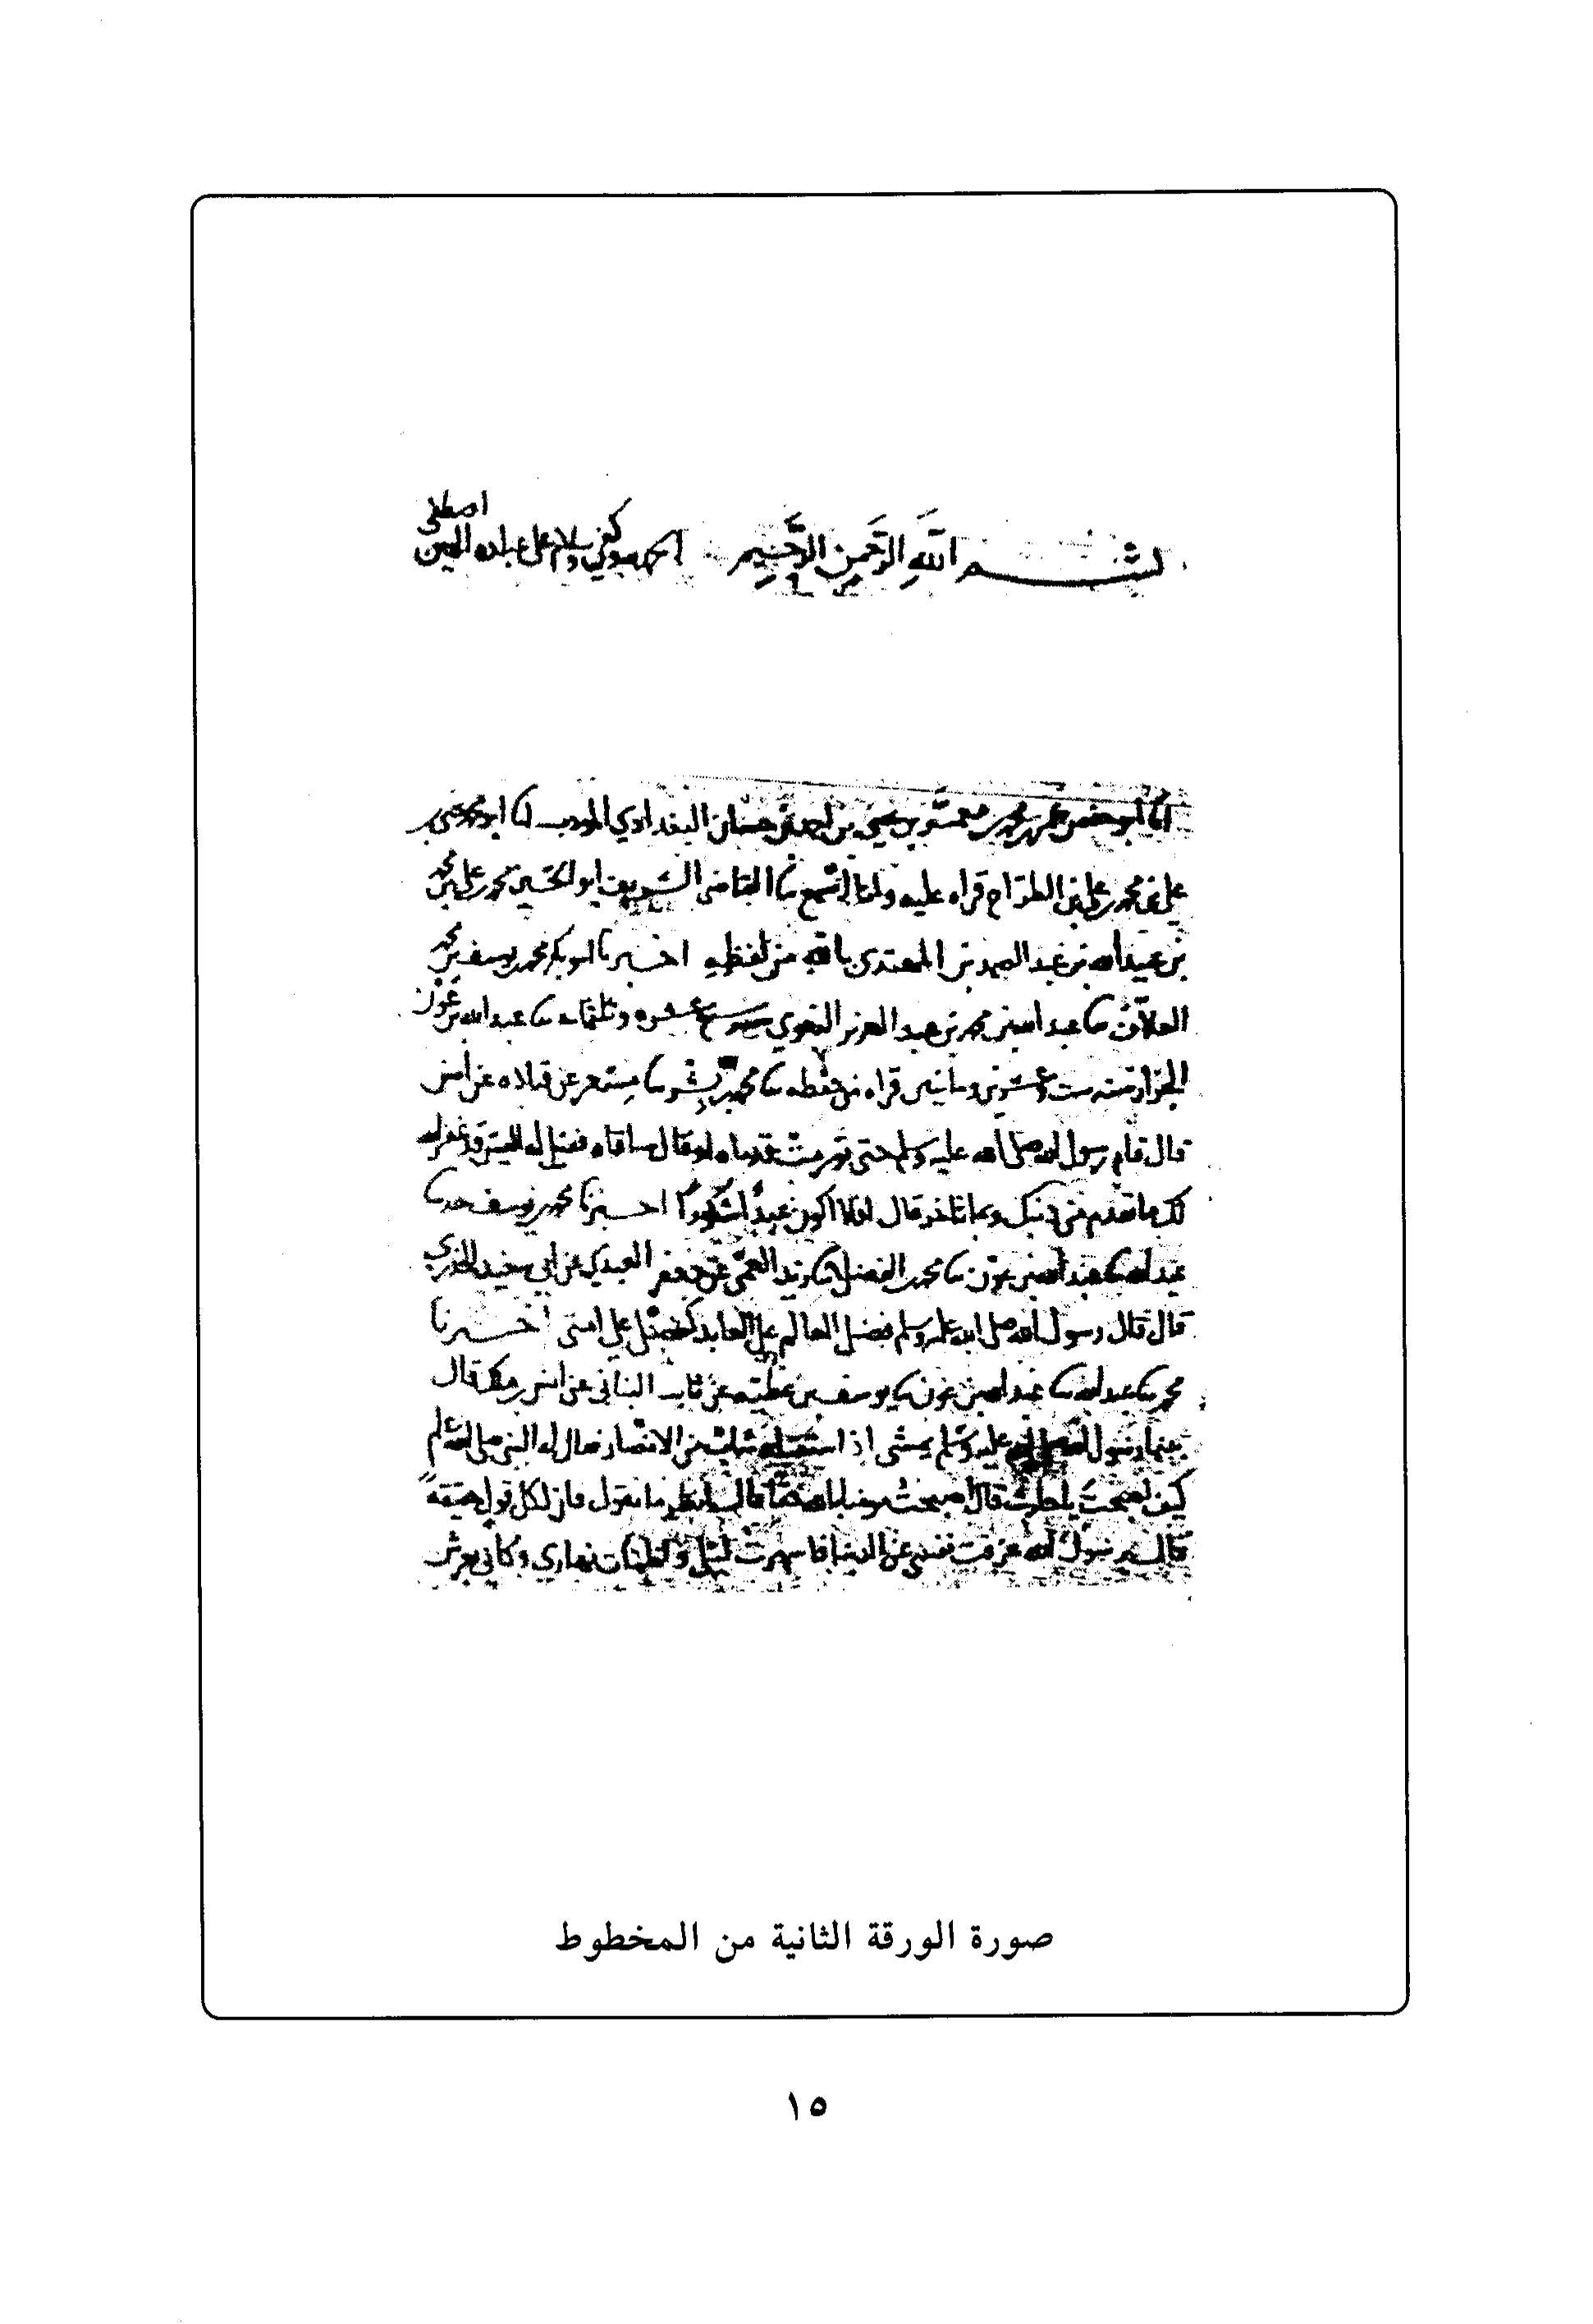 بسم الله الرحمن الرحيم الحمد لله وكفى وسلام على عباده الذين اصطفى
انا ابو حفص عمر بن محمد بن معمر بن يحيى بن احمد بن حسان البغدادي المودب انا ابو محمد يحيى بن
علي بن محمد بن علي بن الطراح قراه عليه وانا اسمع نا القاضي الشريف ابو الحسين محمد بن علي بن محمد
بن عبيد الله بن عبد الصمد بن المهتدي بالله من لفظه اخبرنا ابو بكر محمد بن يوسف بن محمد
العلاف نا عبد الله بن محمد بن عبد العزيز البغوي سنه سبع عشره وثلثمايه نا عبد الله بن عون
الخزاز سنه ست وعشرين ومايتين قراه من حفظه نا محمد بن بشر نا مسعر عن قتاده عن انس
قال قام رسول الله صلى الله عليه وسلم حتى تورمت قدماه او قال ساقاه فقيل له اليس قد غفر الله
لك ما تقدم من ذنبك وما تاخر قال افلا اكون عبدا شكورا اخبرنا محمد بن يوسف نا
عبد الله نا عبد الله بن عون نا محمد بن الفضل عن زيد العمي عن جعفر العبدي عن ابي سعيد الخدري
قال قال رسول الله صلى الله عليه وسلم فضل العالم على العابد كفضلي على امتي اخبرنا
محمد نا عبد الله نا عبد الله بن عون نا يوسف بن عطيه عن ثابت البناني عن انس بن ملك قال
بينما رسول الله صلى الله عليه وسلم يمشي اذ استقبله شاب من الانصار فقال له النبي صلى الله عليه وسلم
كيف اصبحت يا حارث قال اصبحت مومنا بالله حقا قال انظر ما تقول فان لكل قول حقيقه
قال يرسول الله عزفت نفسي عن الدنيا فاسهرت ليلي واظمات نهاري وكاني بعرش
صورة الورقة الثانية من المخطوط
١٥